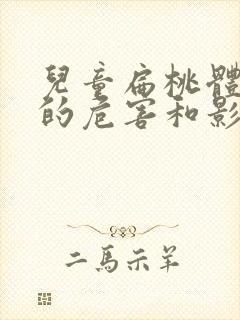 兒童扁桃體
的危害和影
二馬示羊